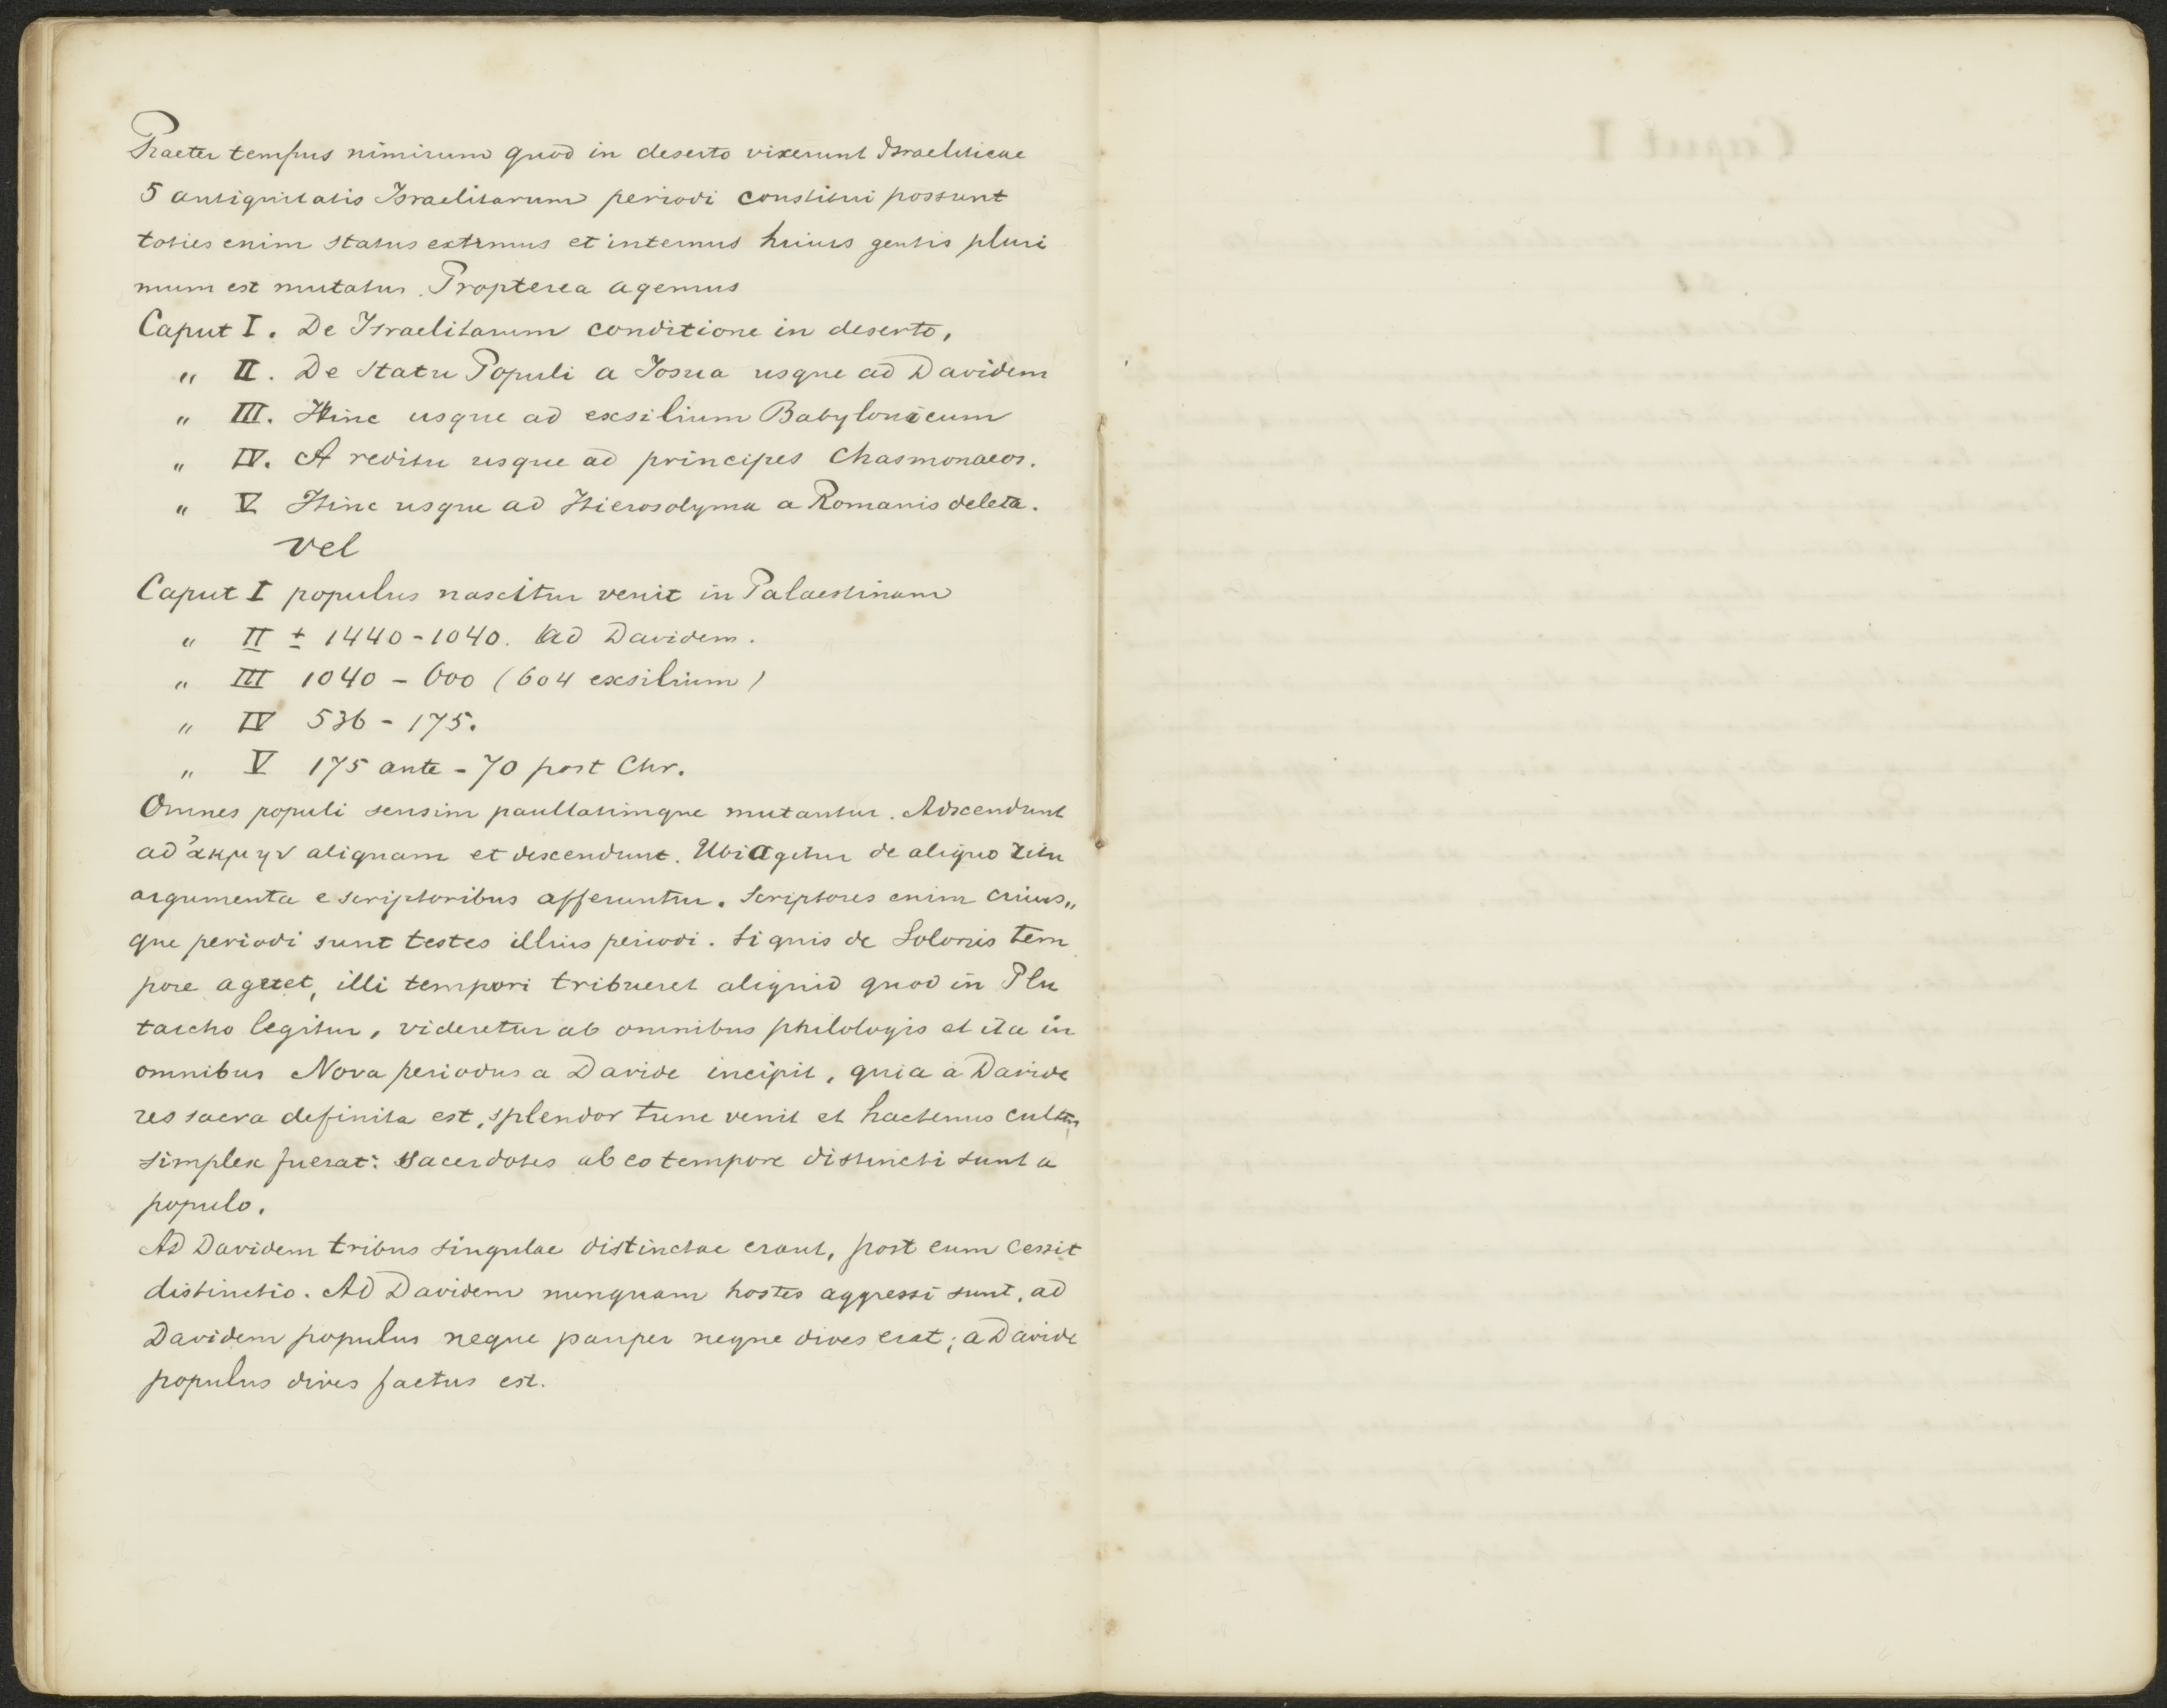 Praeter tempus nimirum quod in deserto vixerunt Israeliticae
5 antiquitatis Israelitarum periodi constitui possunt
toties enim status externus et internus huius gentis pluri
mum est mutatus. Propterea agemus
Caput I. De Israelitarum conditione in deserto.
" II. De statu Populi a Iosua usque ad Davidem
" III. Hinc usque ad exsilium Babylonicum
" IV. A reditu usque ad principes Chasmonaeos.
" V Hinc usque ad Hierosolyma a Romanis deleta.
vel
Caput I populus nascitur venit in Palaestinam
" II ± 1440-1040. ad Davidem.
" III 1040 - 600 (604 exsilium)
" IV 536 - 175.
" V 175 ante - 70 post Chr.
Omnes populi sensim paullatimque mutantur. Adscendunt
ad ἀκμην aliquam et descendunt. Ubi agitur de aliquo ritu
argumenta e scriptoribus afferuntur. Scriptores enim cuius„
que periodi sunt testes illius periodi. Si quis de Solonis tem
pore ageret, illi tempori tribueret aliquid quod in Plu
tarcho legitur, videretur ab omnibus philologis et ita in
omnibus Nova periodus a Davide incipit, quia a Davide
res sacra definita est, splendor tunc venit et hactenus cultus
simplex fuerat: sacerdotes ab eo tempore distincti sunt a
populo.
Ad Davidem tribus singulae distinctae erant, post eum cessit
distinctio. Ad Davidem nunquam hostes aggressi sunt, ad
Davidem populus neque pauper neque dives erat; a Davide
populus dives factus est.